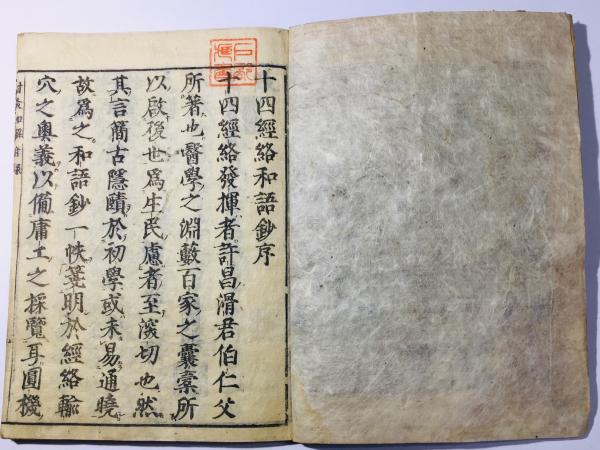 十四經絡和語鈔序
十四經絡發揮者許昌滑君伯仁父
所著也醫學之淵藪百家之囊槖所
以啟後也爲生民慮者至深切也然
其言簡古隱賾於初學或未易通曉
故爲之和語鈔一帙箋明於經絡輸
穴之奧義以備庸工之採覽耳圓機